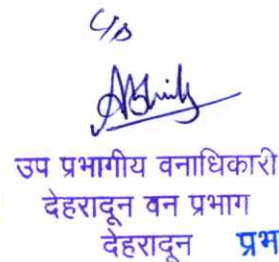 उप प्रभागीय वनाधिकारी
देहरादून वन प्रभाग
देहरादून प्रभ